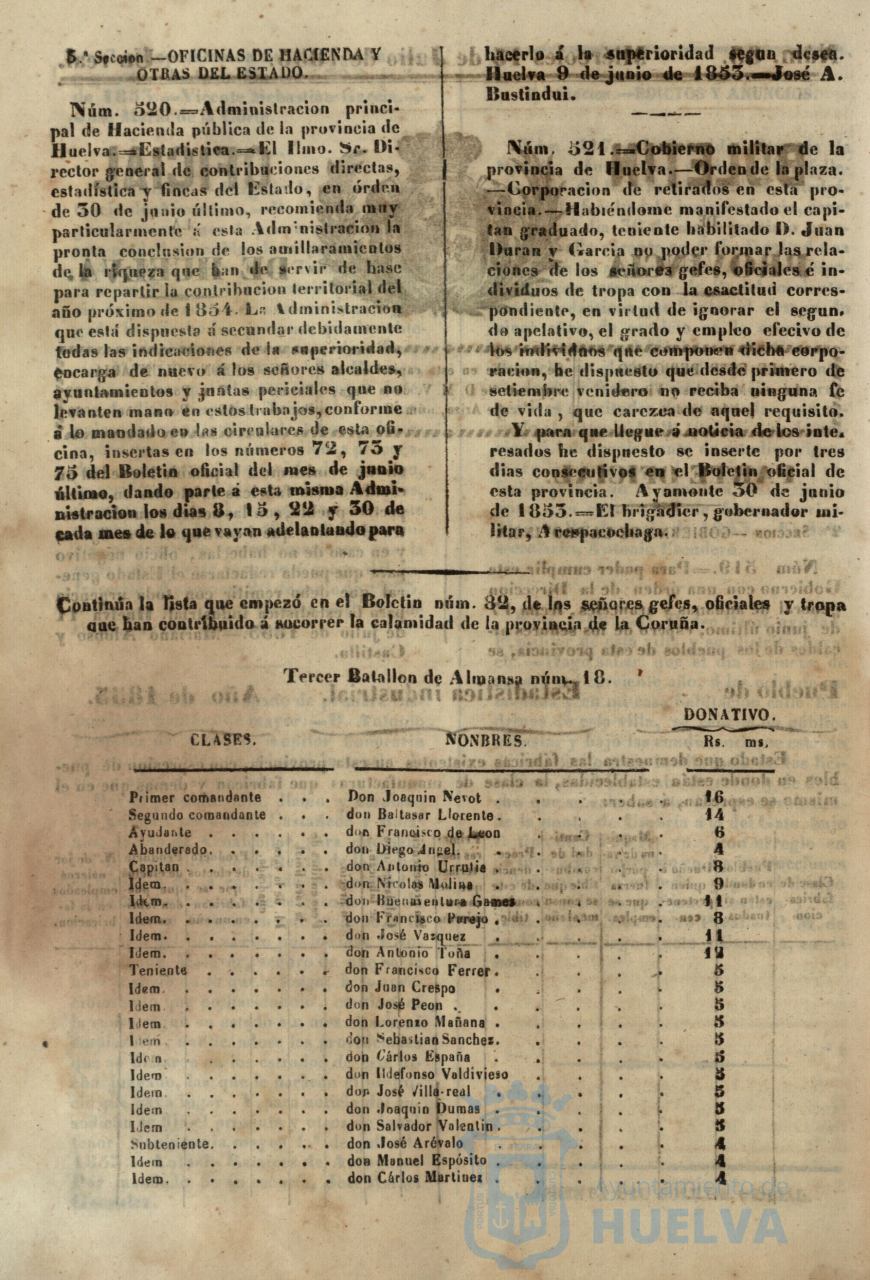 5.ª Seccion —OFICINAS DE HACIENDA Y
OTRAS DEL ESTADO.
Núm. 520.=Administracion princi-
pal de Hacienda pública de la provincia de
Huelva.=Estadistica.=El Ilmo. Sr. Di-
rector general de contribuciones directas,
estadística y fincas del Estado, en órden
de 30 de junio último, recomienda muy
particularmente á esta Administracion la
pronta conclusion de los amillaramientos
de la riqueza que han de servir de base
para repartir la contribucion territorial del
año próximo de 1854. La Administracion
que está dispuesta á secundar debidamente
todas las indicaciones de la superioridad,
encarga de nuevo á los señores alcaldes,
ayuntamientos y juntas periciales que no
levanten mano en estos trabajos, conforme
á lo mandado en las circulares de esta ofi-
cina, insertas en los números 72, 73 y
75 del Boletin oficial del mes de junio
último, dando parte á esta misma Admi-
nistracion los dias 8, 15, 22 y 30 de
cada mes de lo que vayan adelantando para
hacerlo á la superioridad segun desea.
Huelva 9 de junio de 1853.=José A.
Bustindui.
Núm. 521.=Gobierno militar de la
provincia de Huelva.—Orden de la plaza.
—Corporacion de retirados en esta pro-
vincia.—Habiéndome manifestado el capi-
tan graduado, teniente habilitado D. Juan
Duran y Garcia no poder formar las rela-
ciones de los señores gefes, oficiales é in-
dividuos de tropa con la esactitud corres-
pondiente, en virtud de ignorar el segun.
do apelativo, el grado y empleo efecivo de
los individuos que componen dicha corpo-
racion, he dispuesto que desde primero de
setiembre venidero no reciba ninguna fe
de vida, que carezca de aquel requisito.
Y para que llegue á noticia de los inte.
resados he dispuesto se inserte por tres
dias consecutivos en el Boletin oficial de
esta provincia. Ayamonte 30 de junio
de 1853.=El brigadier, gobernador mi-
litar, Arespacochaga.
Continúa la lista que empezó en el Boletin núm. 82, de los señores gefes, oficiales y tropa
que han contribuido á socorrer la calamidad de la provincia de la Coruña.
Tercer Batallon de Almansa núm. 18.
DONATIVO.
CLASES. NONBRES. Rs. ms.
Primer comandante . . . Don Joaquin Nevot . . . . . 16
Segundo comandante . . . don Baltasar Llorente. . . . . 14
Ayudante . . . . . . don Francisco de Leon . . . . 6
Abanderado. . . . . . don Diego Angel. . . . . . 4
Capitan . . . . . . . don Antonio Urrutia . . . . . 8
Idem. . . . . . . . don Nicolas Molina . . . . . 9
Idem. . . . . . . . don Buenaventura Games . . . . 11
Idem. . . . . . . . don Francisco Parejo . . . . . 8
Idem. . . . . . . . don José Vazquez . . . . . 11
Idem. . . . . . . . don Antonio Toña . . . . . 12
Teniente . . . . . . don Francisco Ferrer. . . . . 5
Idem. . . . . . . . don Juan Crespo . . . . . 5
Idem. . . . . . . . don José Peon . . . . . . 5
Idem. . . . . . . . don Lorenzo Mañana . . . . . 5
I em. . . . . . . . don Sebastian Sanchez. . . . . 5
Idem. . . . . . . . don Cárlos España . . . . . 5
Idem . . . . . . . don Ildefonso Valdivieso . . . . 5
Idem. . . . . . . . don José Villa-real . . . . . 5
Idem . . . . . . . don Joaquin Dumas . . . . . 5
Idem . . . . . . . don Salvador Valentin . . . . . 5
Subteniente. . . . . . don José Arévalo . . . . . 4
Idem . . . . . . . don Manuel Espósito . . . . . 4
Idem. . . . . . . . don Cárlos Martinez . . . . . 4
Ayuntamiento de
HUELVA